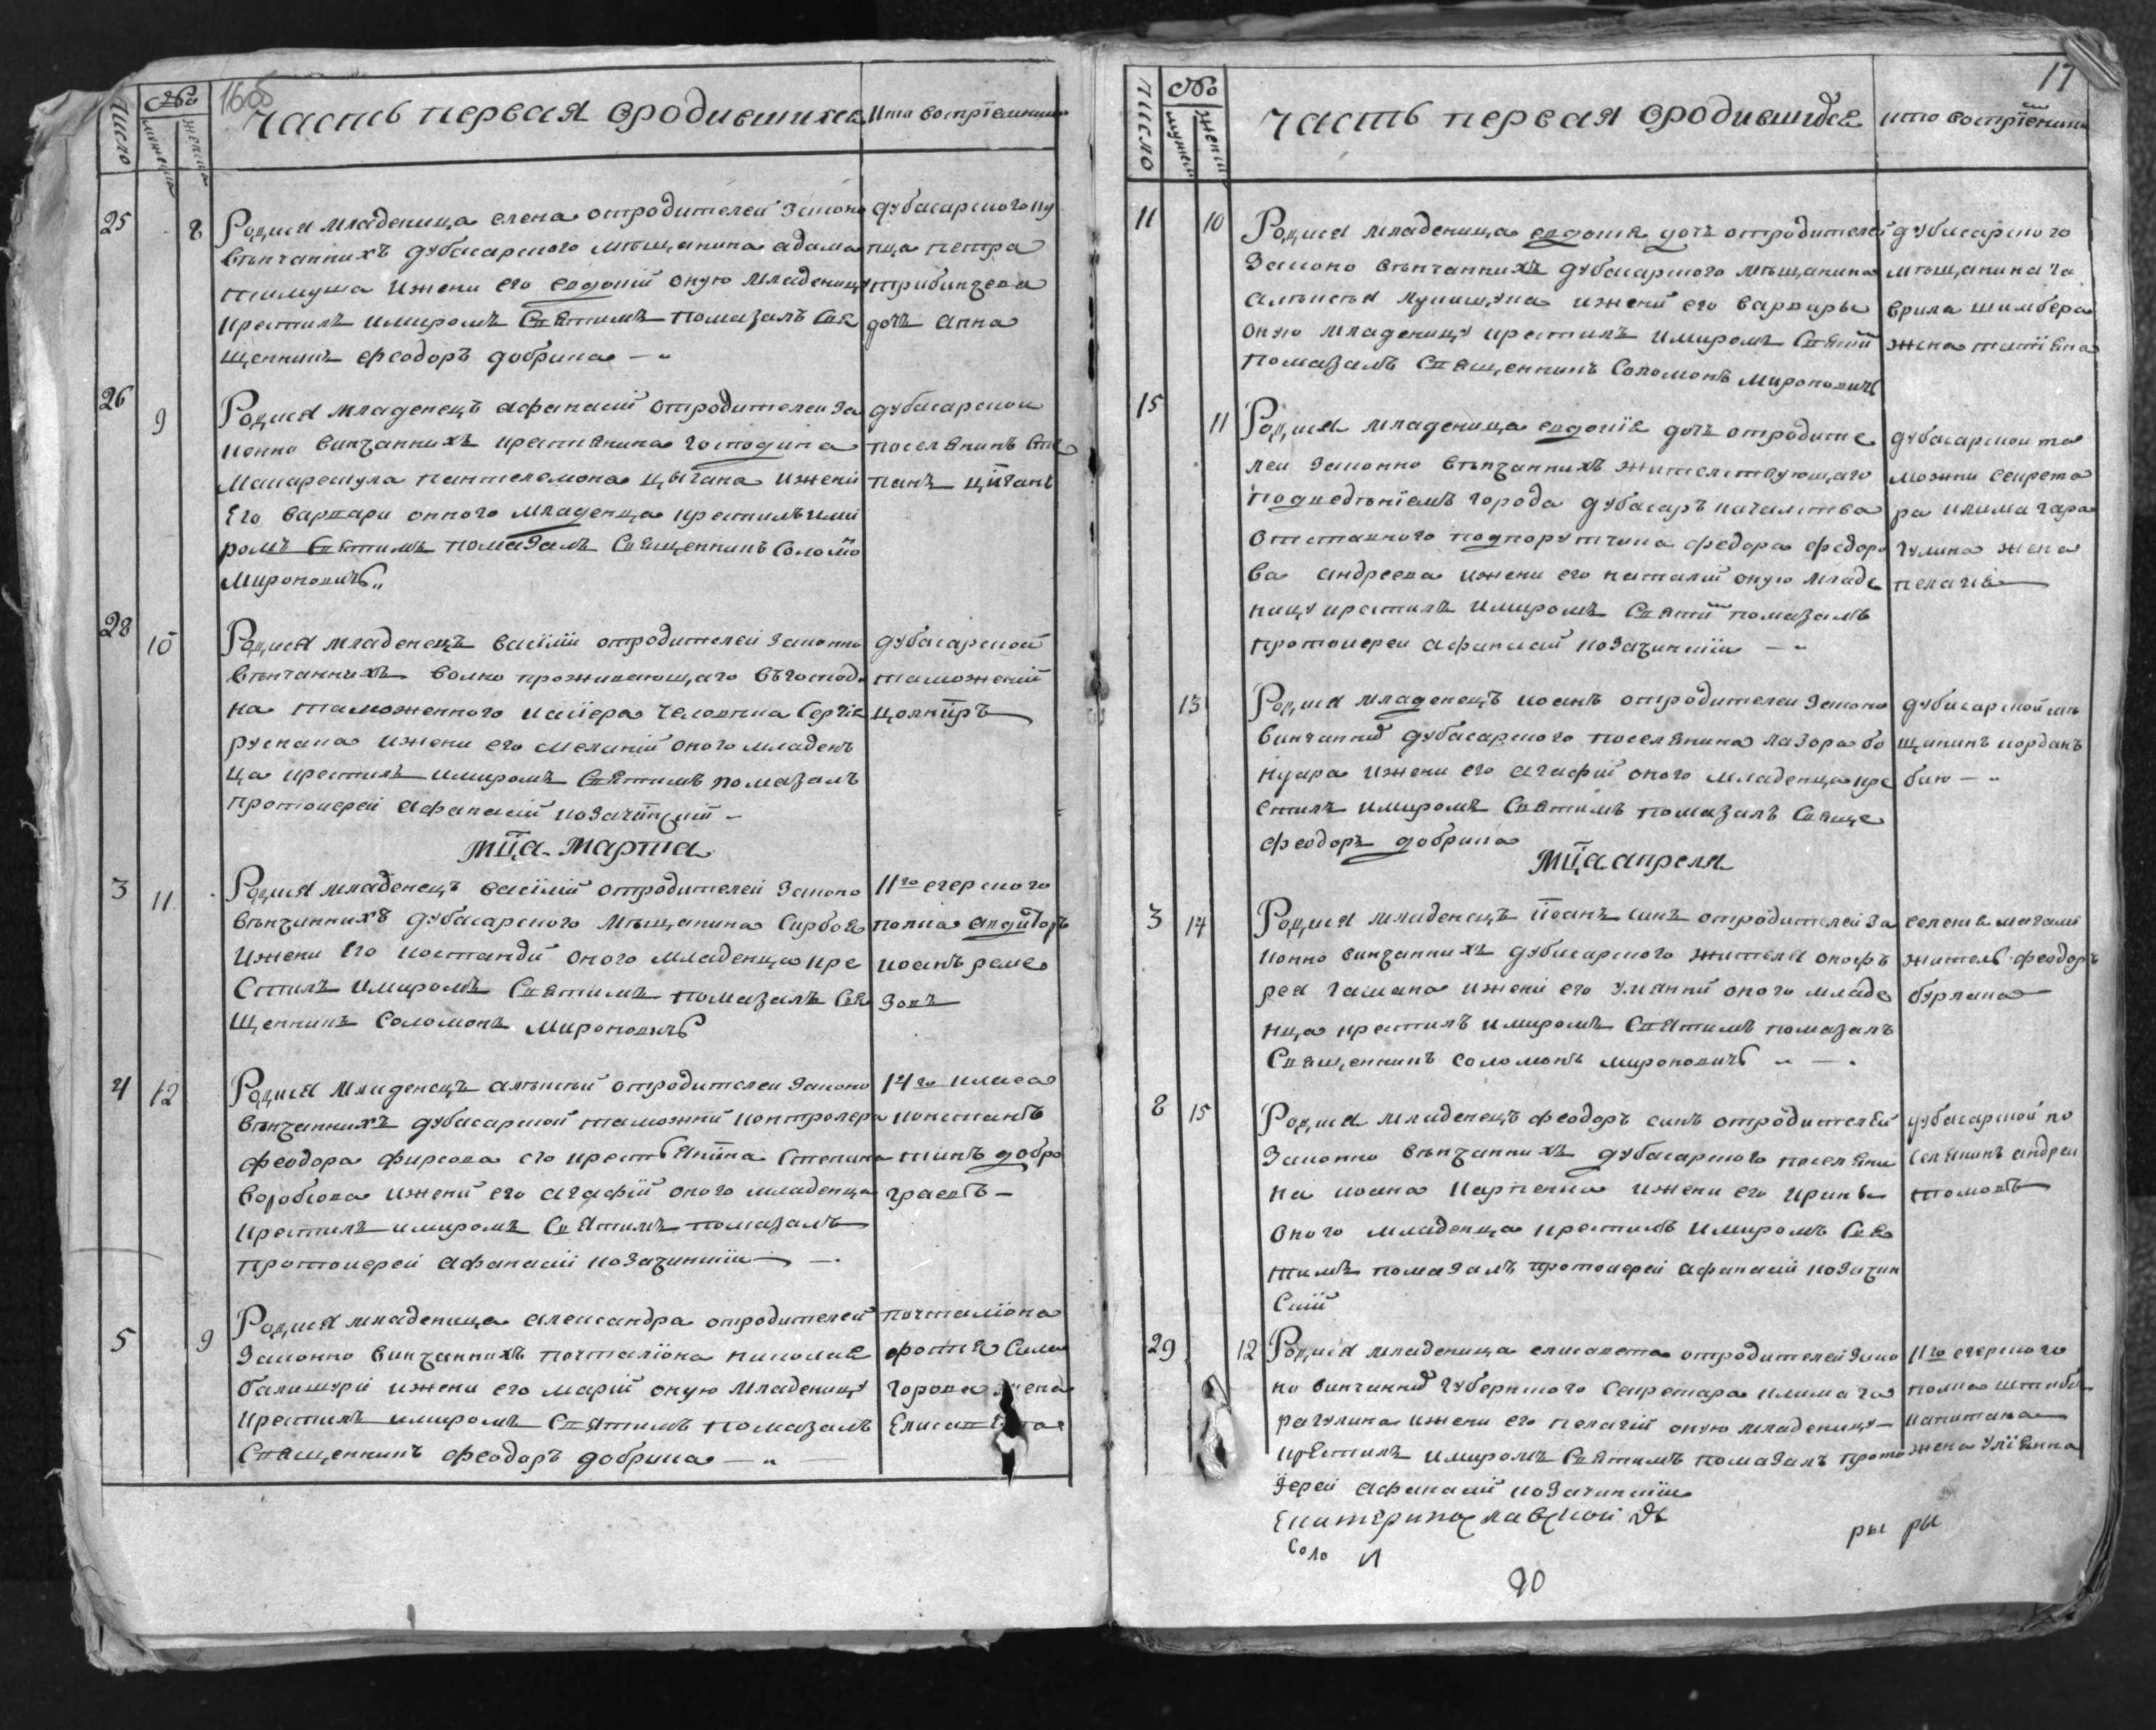 16об
Число
№
мужеска
женска
Часть первая ородившихся
Кто восприемники
25
8
Родися младеница елена отродителей законо
венчанныхъ дубасарского мещанина адама
тимуша ижени его евдокій оную младеницу
крестилъ имиромъ Святимъ помазалъ Свя
щенникъ феодоръ добрика
дубасарского ку
пца петра
дочъ анна
26
9
Родися младенецъ афанасий отродителей за
конно винчаннихъ крестянина господина
Макарескула пантелемона цыгана ижени
Его варвари онного младенца крестилъ ими
ромъ Святимъ помазалъ Священникъ Соломо
Мироновичъ
дубасарской
поселянинъ сте
панъ циганъ
28
10
Родися младенецъ василий отродителей законно
венчаннихъ волно проживающаго въ господи
на таможенного касиера человека Сергия
руснака ижени его меланий оного младен
ца крестилъ имиромъ Святимъ помазалъ
протоиерей афанасий козачинский
дубасарской
таможений
цолнеръ
мца марта
3
11
Родися младенецъ василий отродителей законо
венчаннихъ дубасарского мещанина Сирбоя
ижени его костандий оного младенца кре
Стилъ имиромъ Святимъ помазалъ Свя
щенникъ соломонъ Мироновичъ
11го егерского
полка аудиторъ
иоанъ реме
зовъ
4
12
Родися младенецъ алексий отродителей законо
венчаннихъ дубасарской таможний контролера
феодора фирсова его крестьянина Степана
воробиова ижени его агафий оного младенца
крестилъ имиромъ Святимъ помазалъ
протоиерей афанасий козачинский
14го класа
констан
тинъ добро
граевъ
5
9
Родися младеница александра отродителей
законно винчаннихъ почталиона николая
балишурий ижени его марий оную младеницу
крестилъ имиромъ Святимъ помазалъ
Священникъ феодоръ добрика
почталиона
фотия Сили
горова жена
Елисавета
17
Число
№
мужеск
женск
Часть первая ородившихся
кто восприемники
11
10
Родися младеница евдокия дочъ отродителей
Законо венчаннихъ дубасарского мещанина
алексея лупищука ижений его варвары
оную младеницу крестилъ имиромъ Святим
помазалъ Священникъ Соломонъ Мироновичъ
дубасарского
мещанина га
врила шимбера
жена татияна
15
11
Родися младеница евдокия дочъ отродите
лей законно венчаннихъ жителствующаго
подведениемъ города дубасаръ началства
отставного подпорутчика федора федоро
ва андреева ижени его наталий оную младе
ницу крестилъ имиромъ Святим помазалъ
протоиереи афанасий козачинский
дубасарской та
можни секрета
ра клима гара
гулина жена
пелагия
13
Родися младенецъ иоанъ отродителей законо
винчанних дубасарского поселянина лазора бо
кушра ижени его агафий оного младенца кре
стилъ имиромъ Святимъ помазалъ Свяще
феодоръ добрика
дубасарской ме
щанинъ иорданъ
мца апреля
3
14
Родися младенецъ иоанъ синъ отродителей за
конно винчаннихъ дубасарского жителя онофъ
рея гамана ижений его улянний оного младе
нца крестилъ имиромъ Святимъ помазалъ
Священникъ соломонъ мироновичъ
житель феодоръ
бурлака
8
15
Родися младенецъ феодоръ синъ отродителей
Законно венчаннихъ дубасарского поселяни
на иоана Карпенка ижени его ирини
оного младенца крестилъ имиромъ Свя
тимъ помазалъ протоиерей афанасий козачин
Ский
дубасарской по
селянинъ андреи
томовъ
29
12
Родися младеница елисавета отродителей зако
но винчанних губернского секретара клима га
рагулина ижени его пелагий оную младеницу
крестилъ имиромъ Святимъ помазалъ прото
иерей афанасий козачинский
11го егерского
полка штабсъ
капитана
жена улиянна
Екатеринославской Дх
Соло И
ры ры
90